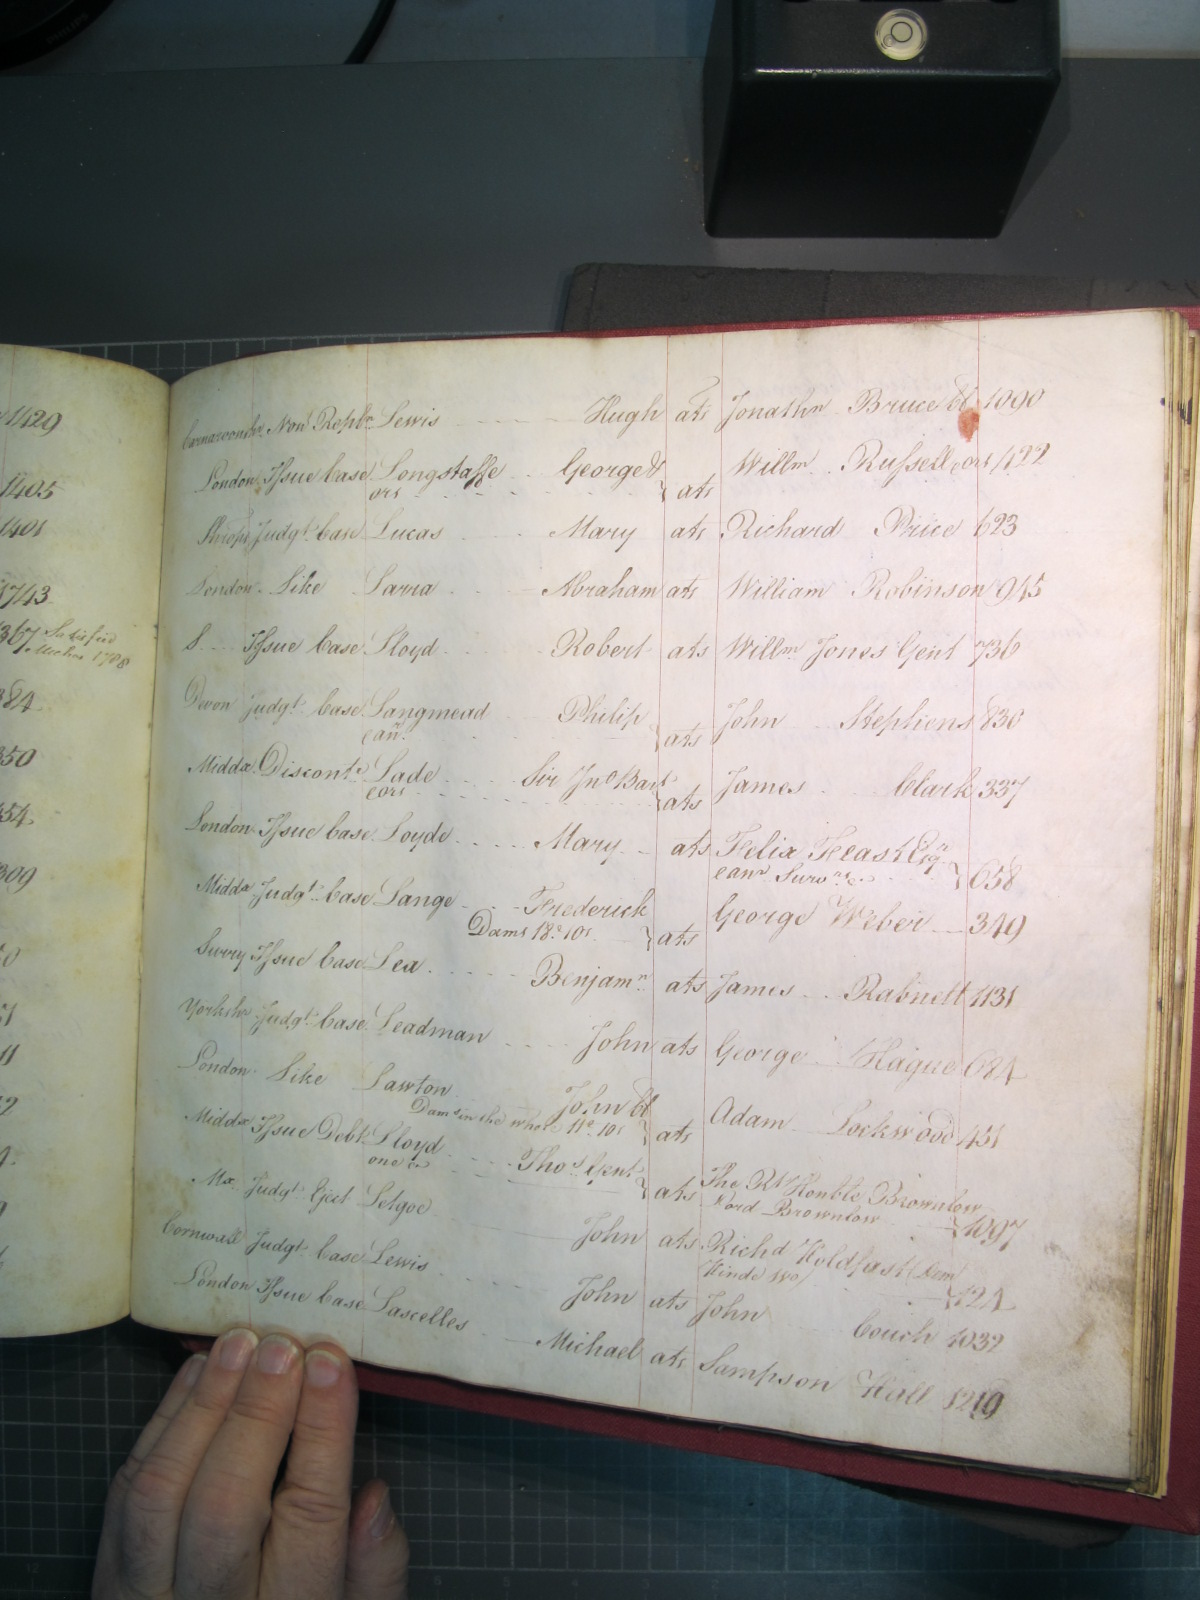 1429
1405
1401
1743
367 Satisfied
Michas 1798
384
350
354
309
Carnarvonshr. Non Replvn Lewis Hugh ats Jonathn Bruce &c 1090
London Issue Case Longstaffe George &
ors } ats Willm Russell, ors 1122
Shrops Judgt. Case Lucas Mary ats Richard Price 623
London Like Sarra Abraham ats William Robinson 945
S. Issue Case Lloyd Robert ats Willm Jones Gent 736
Devon Judgt. Case Langmead Philip
ean. } ats John Stephens 830
Middx. Discont. Lade Sir Jno Bart
eors } ats James Clark 337
London Issue Case Loyde Mary ats Felix Feast Esqr
eanr Survrs &c. } 658
Middx Judgt. Case Lange Frederick
Dams 18. 10s } ats George Weber 349
Surry Issue Case Lea Benjamn ats James Rabnett 1131
Yorkshr Judgt. Case Leadman John ats George Hague 684
London Like Lawton John &
Dams in the whole 11. 10s } ats Adam Lockwood 451
Middx Issue Debt Lloyd Thos Gent
one &c } ats The Rt Honble Brownlow
Lord Brownlow } 1097
Mx. Judgt. Eject Letgoe John ats Richd Holdfast (Dem
Hinde wo) } 124
Cornwall Judgt. Case Lewis John ats John Couch 1032
London Issue Case Lascelles Michael ats Sampson Hall 1219